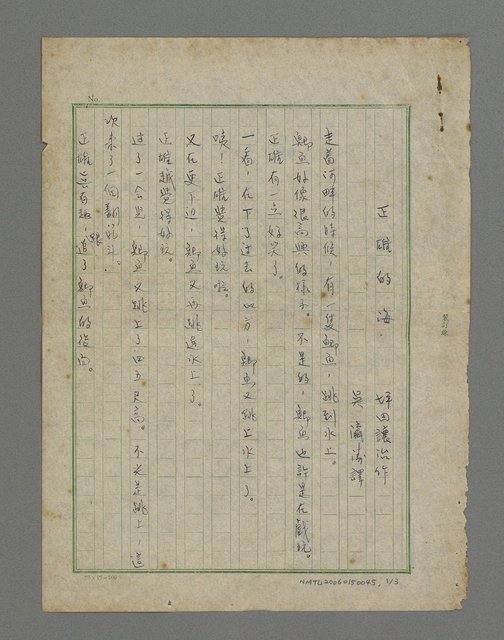 No.
正雄的海．
坪田讓治作
吳瀛濤譯
走着河畔的時候，有一隻鯽魚，跳到水上。
鯽魚好像很高興的樣子。不是的，鯽魚也許是在戲玩。
正雄有一点好笑了。
一看，在下了过去的地方，鯽魚又跳上水上了。
咦！正雄覺得好玩啦。
又在更下边，鯽魚又再跳过水上了。
正雄越覺得好玩。
过了一会兒，鯽魚又跳上了四五尺高。不光是跳上，這
次来了一個翻筋斗．
正雄
有趣，跟
追了鯽魚的後面。
裝訂線
NMTL20060150045, 1/3